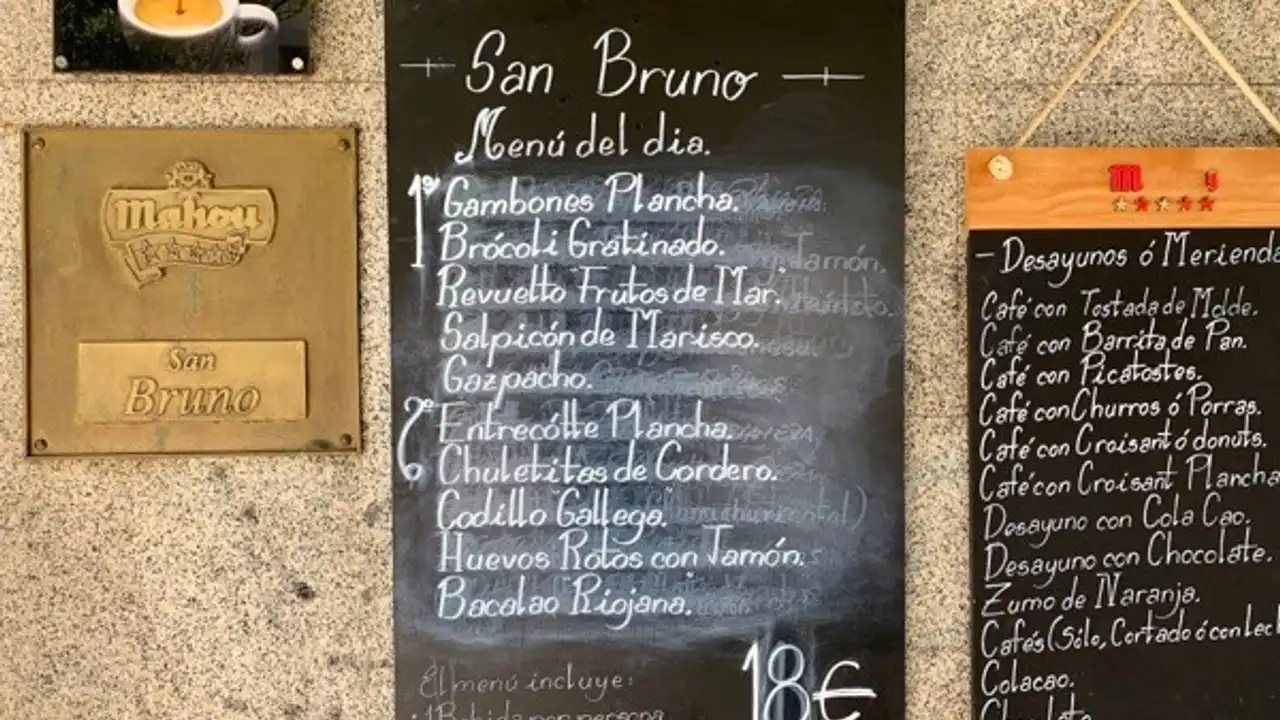 Mahou
San
Bruno
San Bruno
Menú del dia.
1º Gambones Plancha.
Brócoli Gratinado.
Revuelto "Frutos de Mar".
Salpicón de Marisco.
Gazpacho.
2º Entrecótte Plancha.
Chuletitas de Cordero.
Codillo "Gallega".
Huevos Rotos con Jamón.
Bacalao "Riojana".
El menú incluye:
18€
1 Bebida por persona
M y
- Desayunos ó Merienda
Café con Tostada de Molde.
Café con Barrita de Pan.
Café con Picatostes.
Café con Churros ó Porras.
Café con Croisant ó donuts.
Café con Croisant Plancha
Desayuno con Cola Cao.
Desayuno con Chocolate.
Zumo de Naranja.
Cafés (Sólo, Cortado ó con Lech
Colacao.
Chocolate